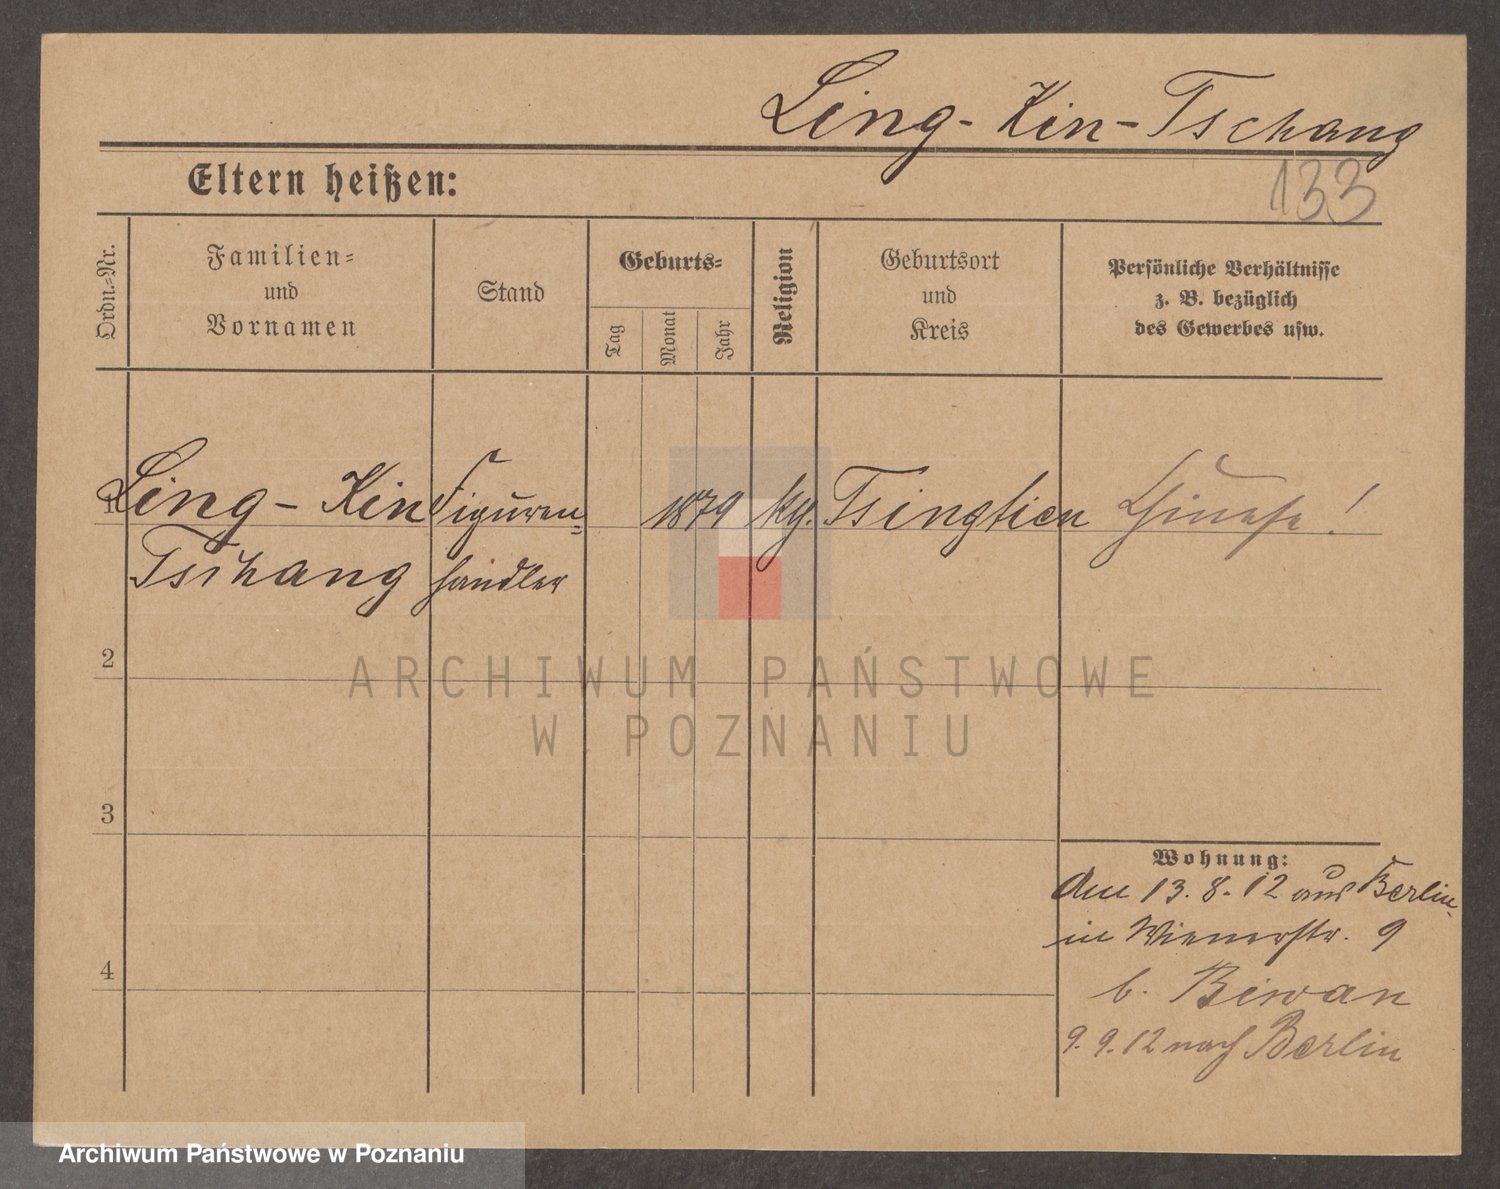 Ling-Kin-Tschang
133
Eltern heißen:
Ordn.-Nr.
Familien-
und
Vornamen
Stand
Geburts-
Tag
Monat
Jahr
Religion
Geburtsort
und
Kreis
Persönliche Verhältnisse
z. B. bezüglich
des Gewerbes usw.
1 Ling-Kin Figuren- 1879 Tsingtien Chinese!
Tschang händler
2
ARCHIWUM PAŃSTWOWE
W POZNANIU
3
Wohnung:
Am 13.8.12 aus Berlin
in Wienerstr. 9
4
b. Biwan
9.9.12 nach Berlin
Archiwum Państwowe w Poznaniu